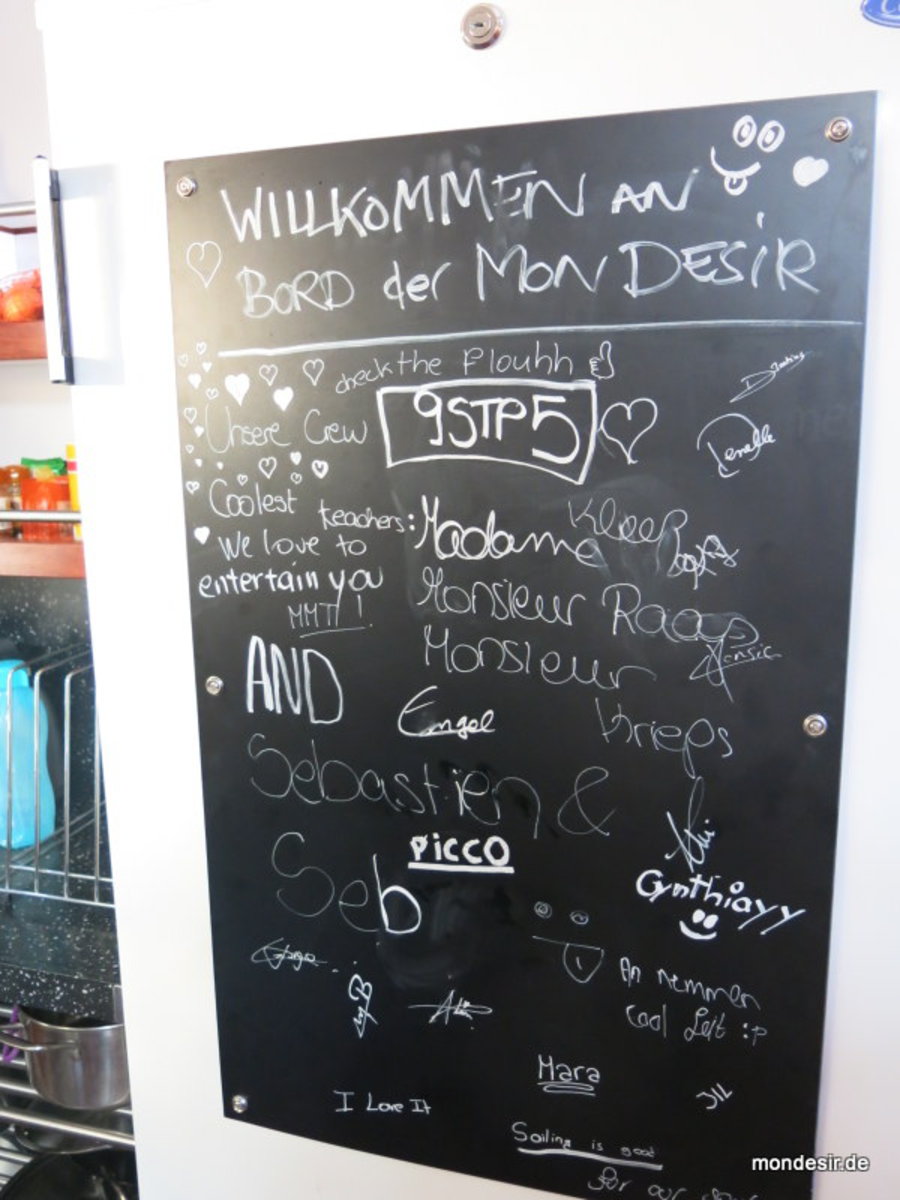 WILLKOMMEN AN
BORD der MON DESIR
check the Flouhh
Unsere Crew
9STP5
Denelle
Coolest teachers: Madame Kleep
We love to
entertain you
MMTI!
Monsieur Raas
Monsieur
Krieps
AND
Engel
Sebastien &
Seb
PICCO
Cynthiayy
An nemmen
cool Leit :p
Mara
JIL
I Love It
Sailing is good
for our
mondesir.de